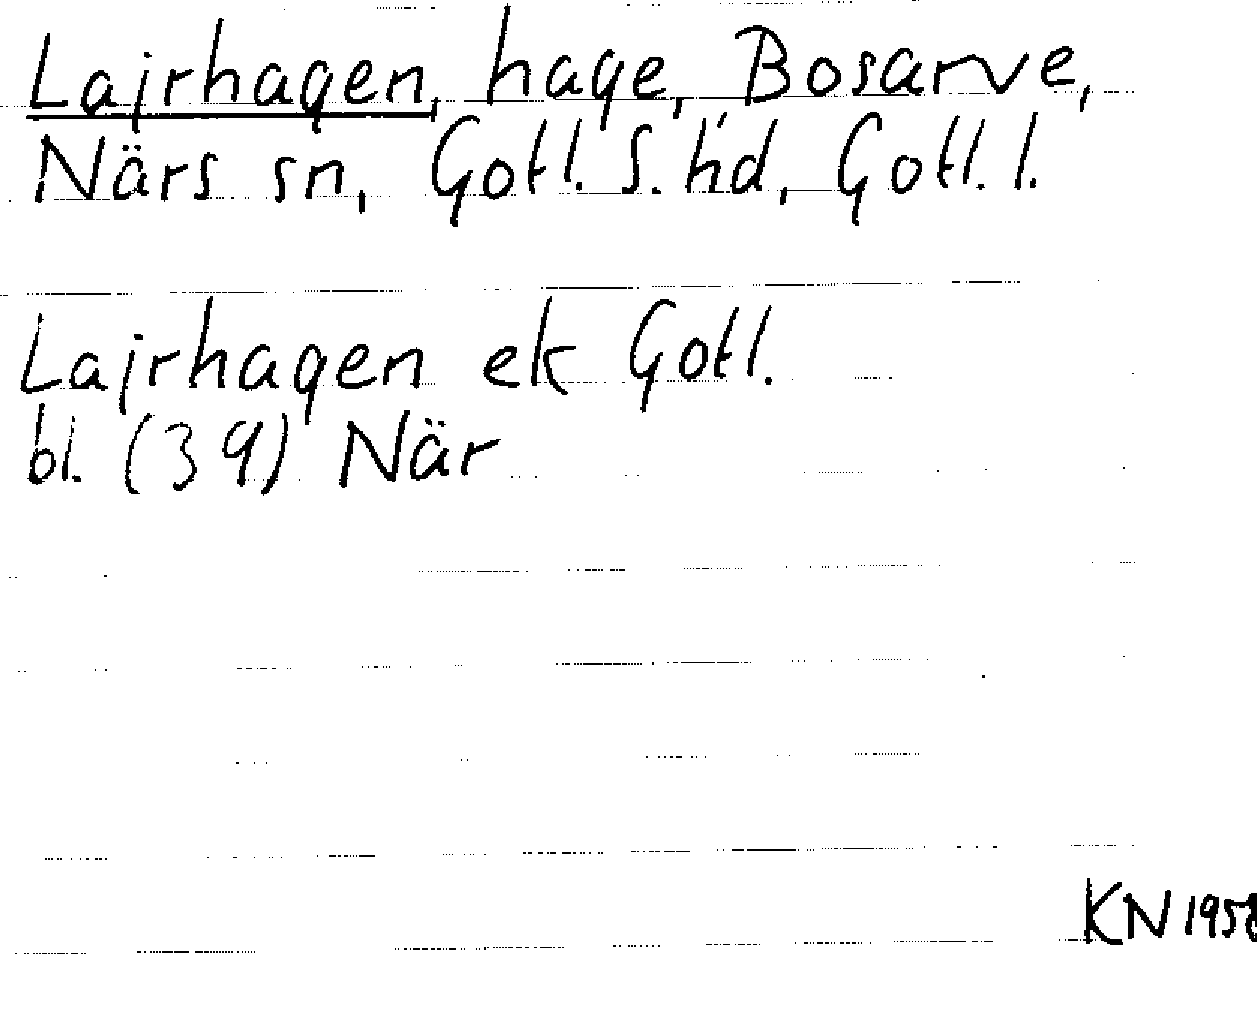 Lajrhagen, hage, Bosarve,
Närs sn, Gotl. S. hd, Gotl. l.
Lajrhagen ek Gotl.
bl. (39) När
KN 1958